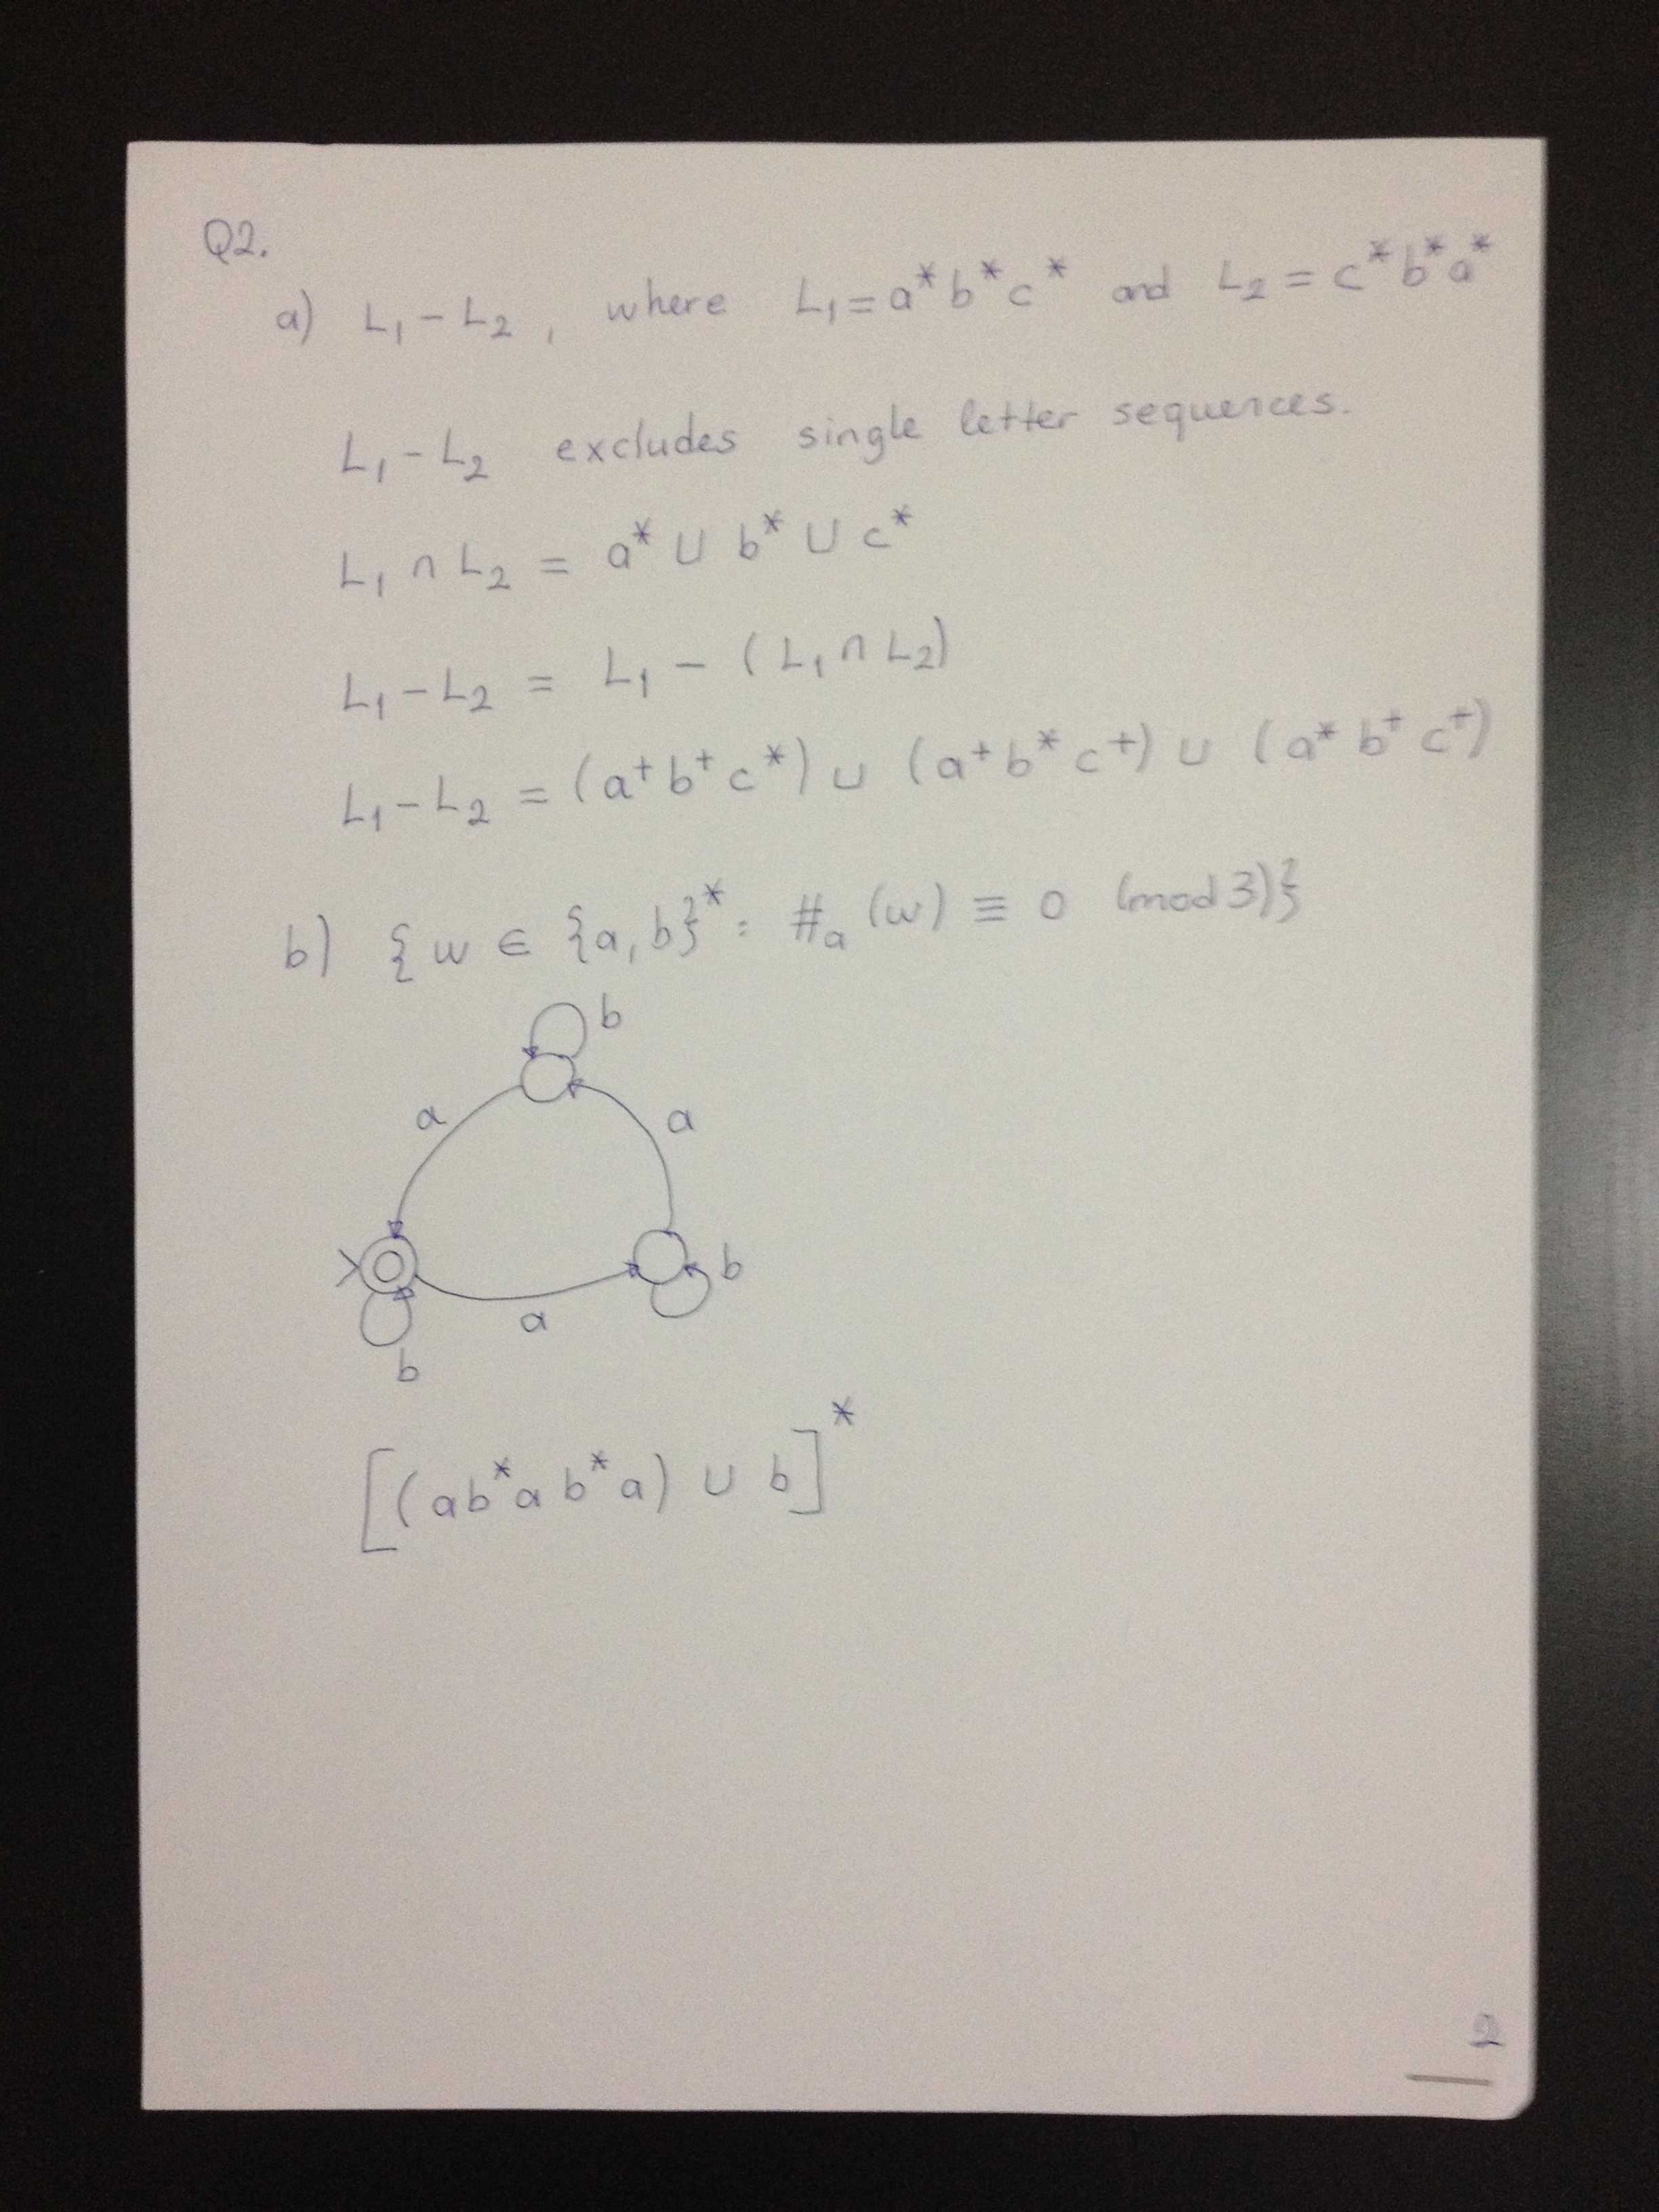 Q2.
a) L₁ - L₂, where L₁ = a*b*c* and L₂ = c*b*a*
L₁ - L₂ excludes single letter sequences.
L₁ ∩ L₂ = a* ∪ b* ∪ c*
L₁ - L₂ = L₁ - (L₁ ∩ L₂)
L₁ - L₂ = (a⁺b⁺c*) ∪ (a⁺b*c⁺) ∪ (a*b⁺c⁺)
b) {w ∈ {a,b}* : #ₐ(w) ≡ 0 (mod 3)}
b
a
a
b
a
b
[(ab*ab*a) ∪ b]*
2